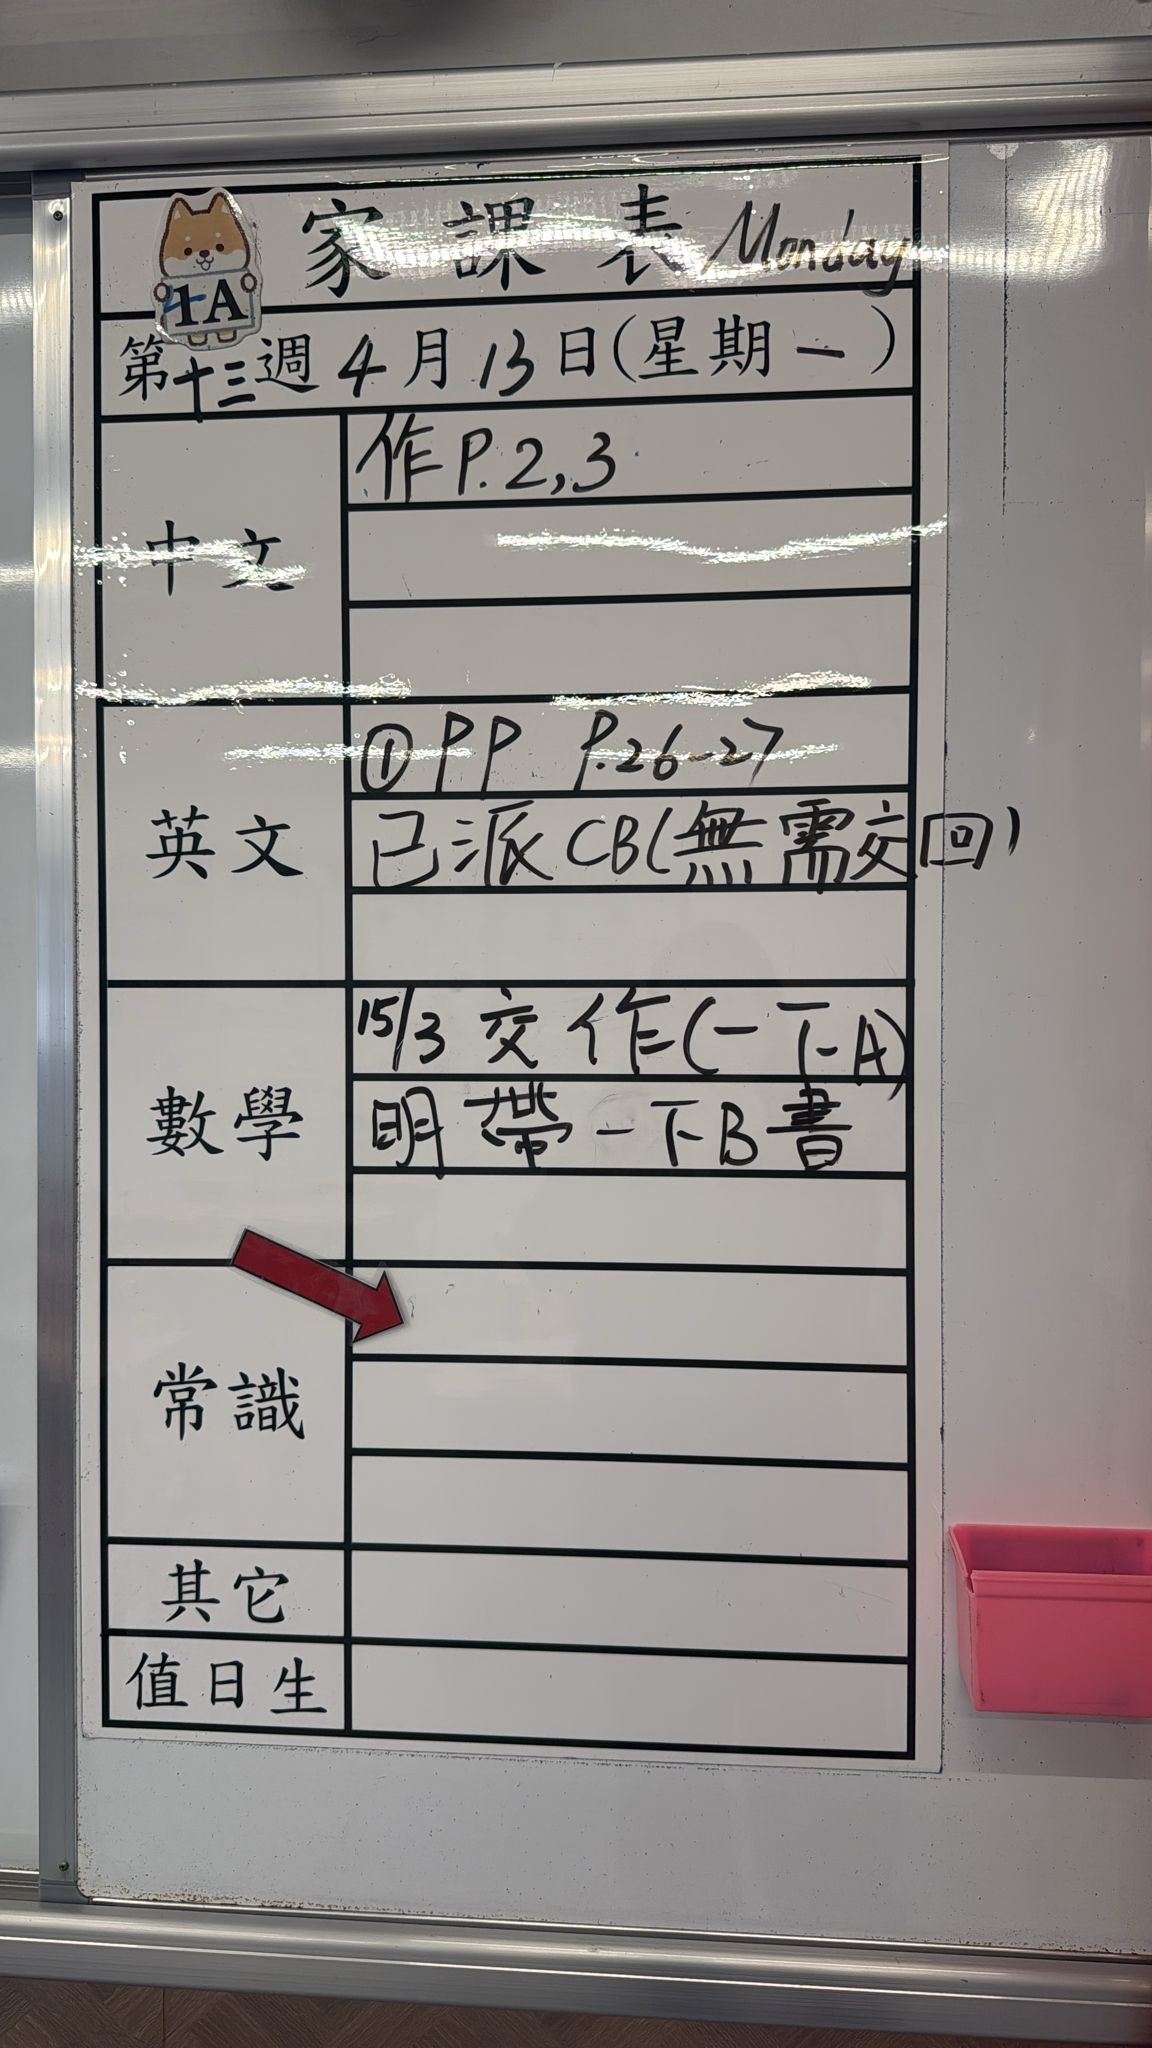 家課表 Monday
1A
第十三週 4月13日(星期一)
中文
作P.2,3
英文
①PP P.26-27
已派CB(無需交回)
數學
15/3 交作(一下A)
明帶一下B書
常識
其它
值日生